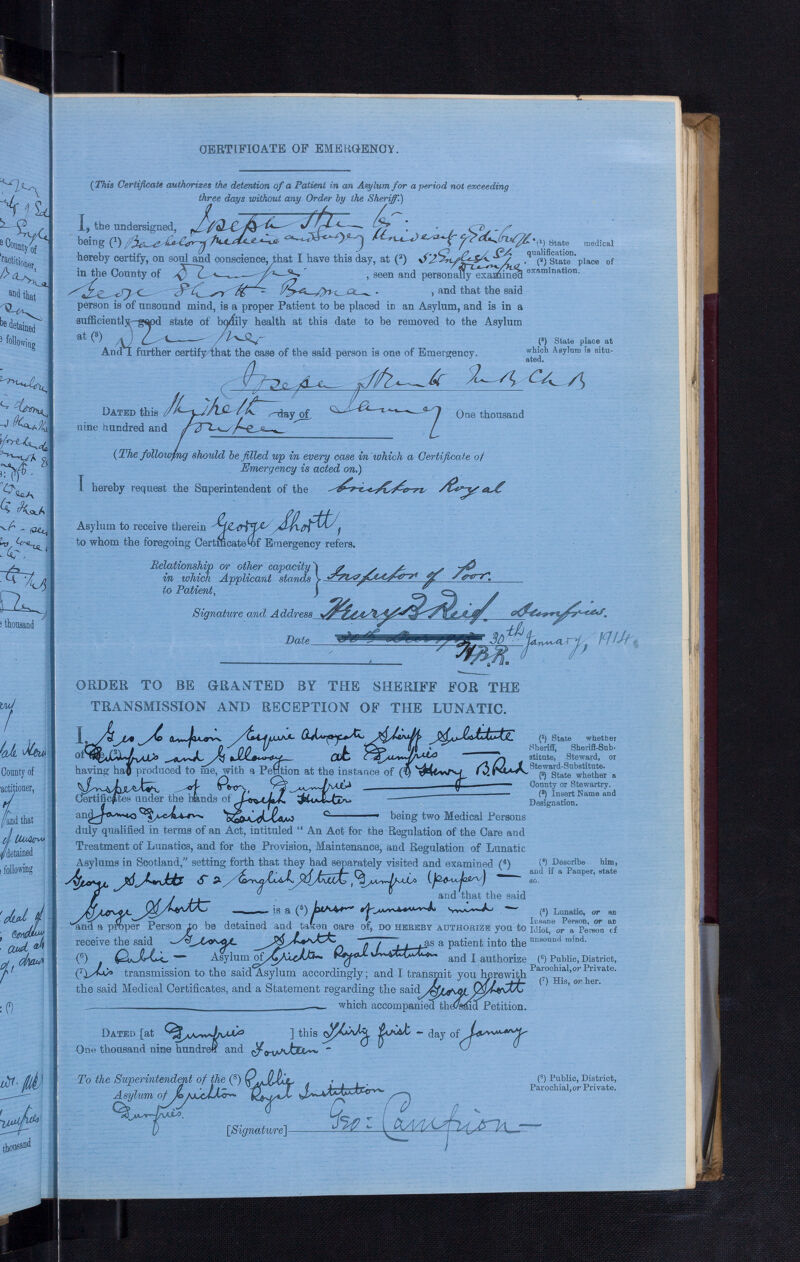 CERTIFICATE OF EMERGENCY.
(This Certificate authorizes the detention of a Patient in an Asylum for a period not exceeding
three days without any Order by the Sheriff.)
I, the undersigned, Joseph Hunter
being (¹) Bachelor of Medicine and Surgery University of Edinburgh
hereby certify, on soul and conscience, that I have this day, at (²) 52 English St Dumfries
in the County of Dumfries, seen and personally examined
George Shortt Barman, and that the said
person is of unsound mind, is a proper Patient to be placed in an Asylum, and is in a
sufficiently good state of bodily health at this date to be removed to the Asylum
at (³) Dumfries
And I further certify that the case of the said person is one of Emergency.
(¹) State medical
qualification.
(²) State place of
examination.
(³) State place at
which Asylum is situ-
ated.
Joseph Hunter M B Ch B
DATED this Thirtieth day of January One thousand
nine hundred and fourteen
(The following should be filled up in every case in which a Certificate of
Emergency is acted on.)
I hereby request the Superintendent of the Crichton Royal
Asylum to receive therein George Shortt,
to whom the foregoing Certificate of Emergency refers.
Relationship or other capacity
in which Applicant stands
to Patient,
Inspector of Poor.
Signature and Address Henry B Reid. Dumfries.
Date 30th January, 1914.
H.B.R.
ORDER TO BE GRANTED BY THE SHERIFF FOR THE
TRANSMISSION AND RECEPTION OF THE LUNATIC.
I, Geo Campion Esquire Advocate Sheriff Substitute
of (²) Dumfries and Galloway at Dumfries
having had produced to me, with a Petition at the instance of (³) Henry B. Reid
Inspector of Poor, Dumfries
Certificates under the hands of Joseph Hunter
and James Dickson Laidlaw being two Medical Persons
duly qualified in terms of an Act, intituled "An Act for the Regulation of the Care and
Treatment of Lunatics, and for the Provision, Maintenance, and Regulation of Lunatic
Asylums in Scotland," setting forth that they had separately visited and examined (⁴)
George Shortt 52 English Street, Dumfries (pauper)
and that the said
George Shortt is a (⁵) person of unsound mind
and a proper Person to be detained and taken care of, DO HEREBY AUTHORIZE you to
receive the said George Shortt as a patient into the
(⁶) Public Asylum of Crichton Royal Institution and I authorize
(⁷) his transmission to the said Asylum accordingly; and I transmit you herewith
the said Medical Certificates, and a Statement regarding the said George Shortt
which accompanied the said Petition.
(¹) State whether
Sheriff, Sheriff-Sub-
stitute, Steward, or
Steward-Substitute.
(²) State whether a
County or Stewartry.
(³) Insert Name and
Designation.
(⁴) Describe him,
and if a Pauper, state
so.
(⁵) Lunatic, or an
Insane Person, or an
Idiot, or a Person of
unsound mind.
(⁶) Public, District,
Parochial, or Private.
(⁷) His, or her.
DATED [at Dumfries ] this Thirty first day of January
One thousand nine hundred and Fourteen
To the Superintendent of the (⁸) Public
Asylum of Crichton Royal Institution
Dumfries.
(⁸) Public, District,
Parochial, or Private.
[Signature] Geo: Campion